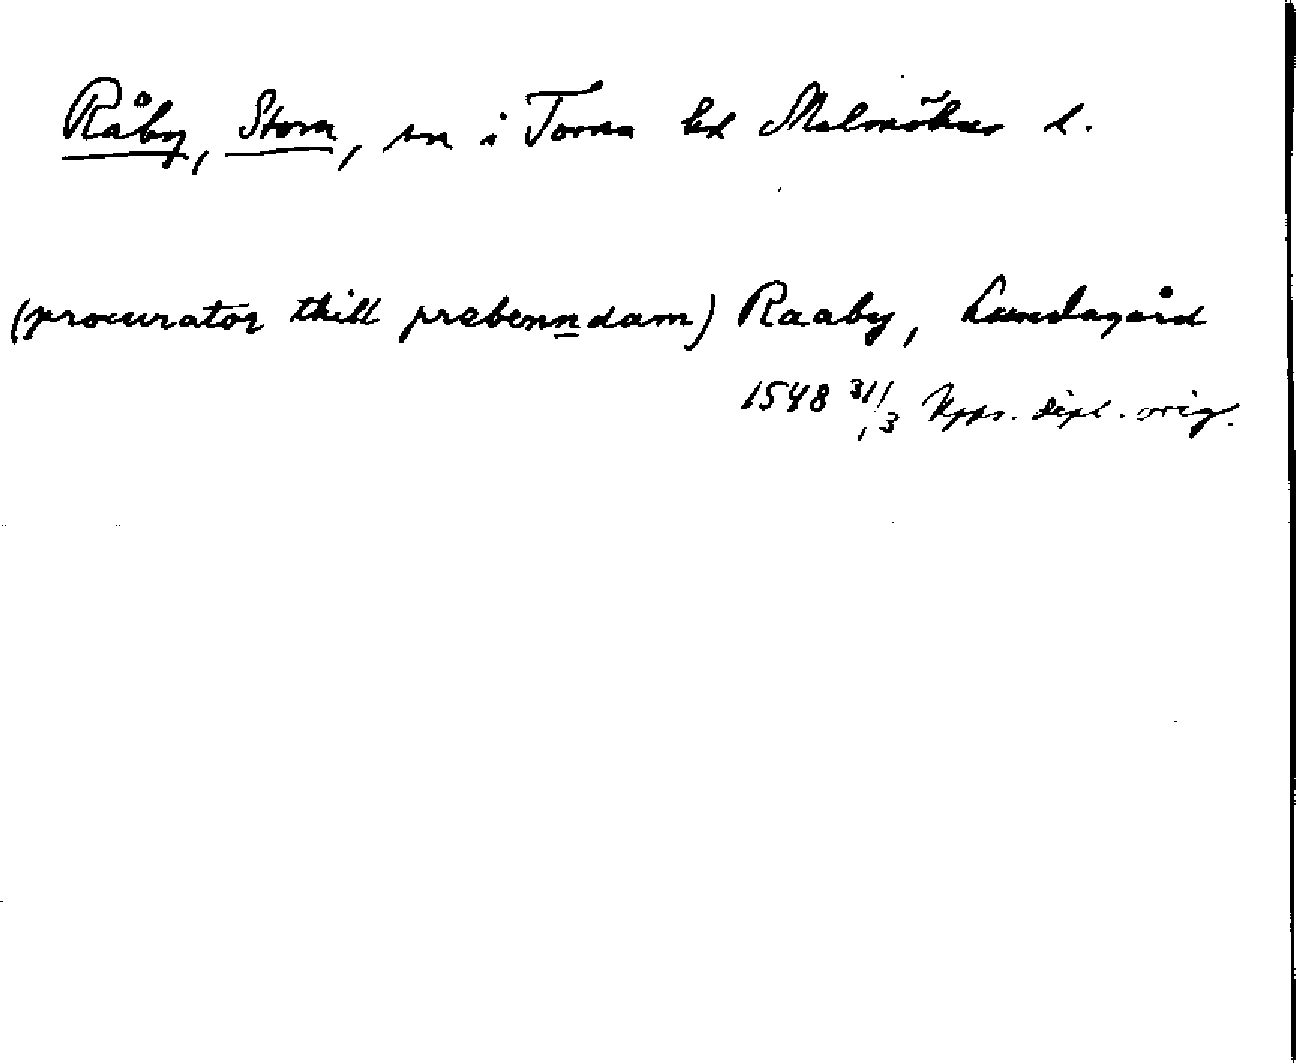 Råby, Stora, sn i Torna hd Malmöhus l.
(procurator thill prebenndam) Raaby, Lundagård
1548 31/3 Upps. dipl. orig.